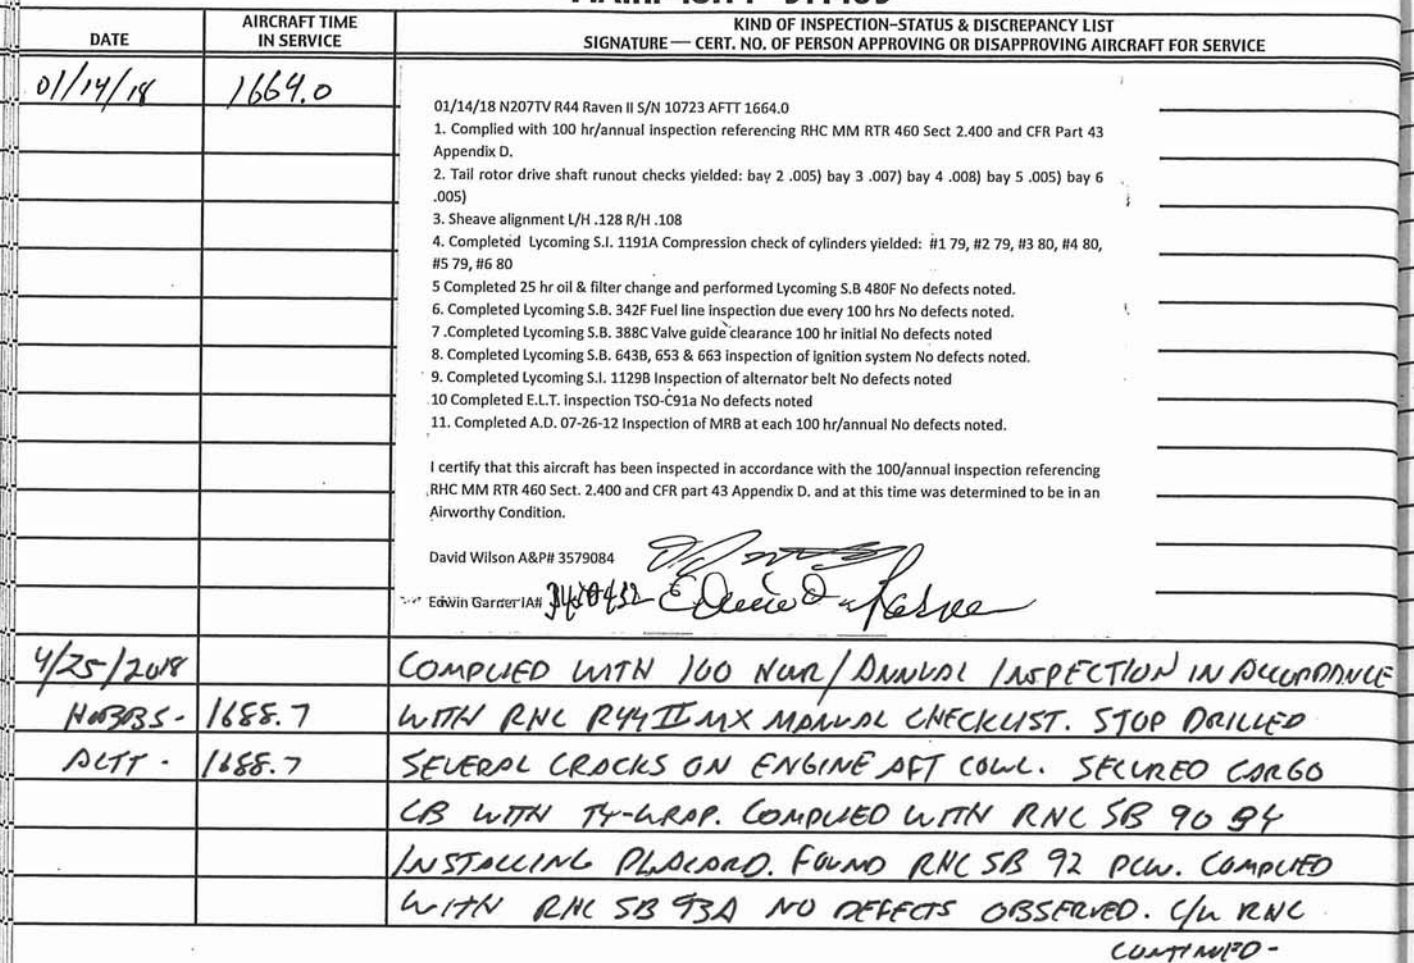 DATE
AIRCRAFT TIME
IN SERVICE
KIND OF INSPECTION–STATUS & DISCREPANCY LIST
SIGNATURE — CERT. NO. OF PERSON APPROVING OR DISAPPROVING AIRCRAFT FOR SERVICE
01/14/18 1664.0
01/14/18 N207TV R44 Raven II S/N 10723 AFTT 1664.0
1. Complied with 100 hr/annual inspection referencing RHC MM RTR 460 Sect 2.400 and CFR Part 43
Appendix D.
2. Tail rotor drive shaft runout checks yielded: bay 2 .005) bay 3 .007) bay 4 .008) bay 5 .005) bay 6
.005)
3. Sheave alignment L/H .128 R/H .108
4. Completed Lycoming S.I. 1191A Compression check of cylinders yielded: #1 79, #2 79, #3 80, #4 80,
#5 79, #6 80
5 Completed 25 hr oil & filter change and performed Lycoming S.B 480F No defects noted.
6. Completed Lycoming S.B. 342F Fuel line inspection due every 100 hrs No defects noted.
7 .Completed Lycoming S.B. 388C Valve guide clearance 100 hr initial No defects noted
8. Completed Lycoming S.B. 643B, 653 & 663 inspection of ignition system No defects noted.
9. Completed Lycoming S.I. 1129B Inspection of alternator belt No defects noted
10 Completed E.L.T. inspection TSO-C91a No defects noted
11. Completed A.D. 07-26-12 Inspection of MRB at each 100 hr/annual No defects noted.
I certify that this aircraft has been inspected in accordance with the 100/annual inspection referencing
RHC MM RTR 460 Sect. 2.400 and CFR part 43 Appendix D. and at this time was determined to be in an
Airworthy Condition.
David Wilson A&P# 3579084
Edwin Garner IA#
4/25/2018 COMPLIED WITH 100 HOUR/ANNUAL INSPECTION IN ACCORDANCE
HOBBS - 1688.7 WITH RHC R44 II MX MANUAL CHECKLIST. STOP DRILLED
ACTT - 1688.7 SEVERAL CRACKS ON ENGINE AFT COWL. SECURED CARGO
CB WITH TY-WRAP. COMPLIED WITH RHC SB 90 BY
INSTALLING PLACARD. FOUND RHC SB 92 PCW. COMPLIED
WITH RHC SB 93A NO DEFECTS OBSERVED. C/W RHC
CONTINUED -